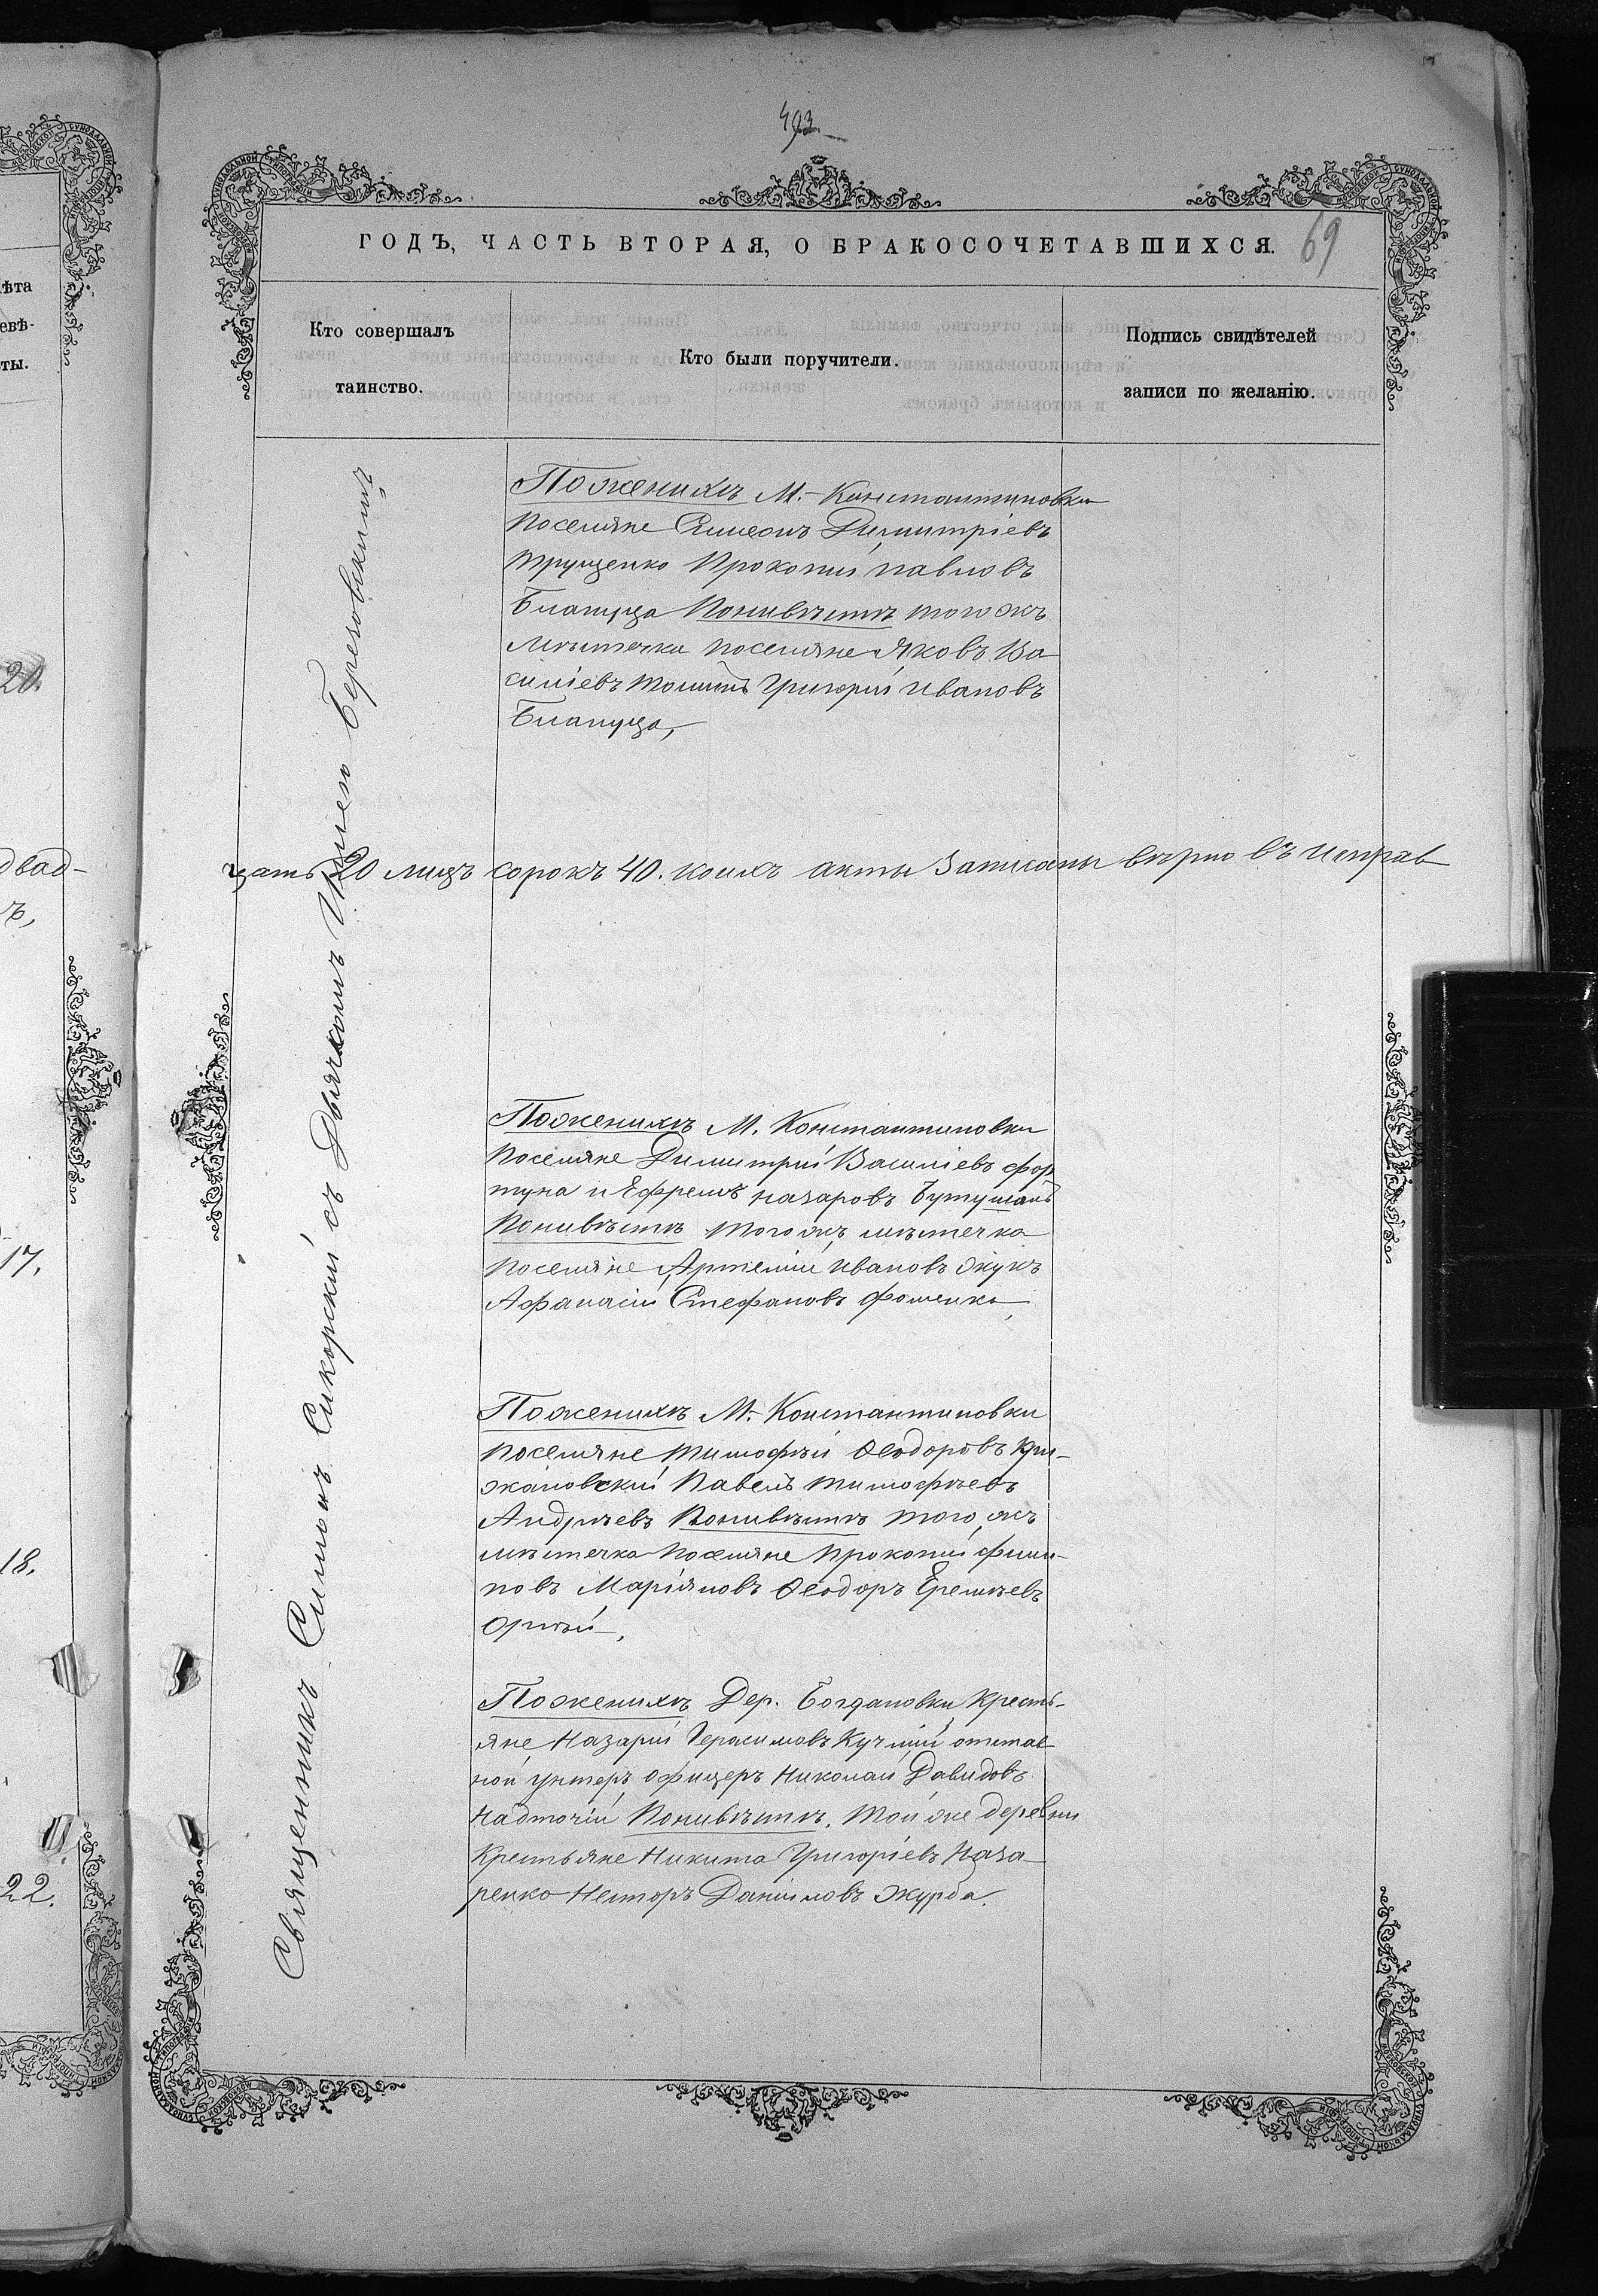 493.
ГОДЪ, ЧАСТЬ ВТОРАЯ, О БРАКОСОЧЕТАВШИХСЯ.
69
Кто совершалъ
таинство.
Кто были поручители.
Подпись свидѣтелей
записи по желанію.
Священникъ Симонъ Сикорскій съ Дьячкомъ Березовскимъ
По женихѣ М. Константиновки
поселяне Симеонъ Димитріевъ
Трущенко Прокопій Павловъ
По невѣстѣ того жъ
мѣстечка поселяне Яковъ Ва
силіевъ Григорій Ивановъ
цать 20 лицъ сорокъ 40. коихъ акты записаны вѣрно въ исправ
По женихѣ М. Константиновки
Поселяне Димитрій Василіевъ Фор
туна и Ефремъ Назаровъ
По невѣстѣ того жъ мѣстечка
поселяне Артемій Ивановъ
Афанасій Стефановъ Фоменко,
По женихѣ М. Константиновки
поселяне Тимофѣй Ѳеодоровъ Кри-
жановскій Павелъ Тимофѣевъ
Андрѣевъ По невѣстѣ того жъ
мѣстечка поселяне Прокопій Фили-
повъ Маріяновъ Ѳеодоръ Еремѣевъ
По женихѣ Дер. Богдановки Кресть-
яне Назарій Герасимовъ Кучмій отстав
ной унтеръ офицеръ Николай Давидовъ
Надточій По невѣстѣ. Той же деревни
Крестьяне Никита Григоріевъ Наза-
ренко Несторъ Даніиловъ Журба.
двад-
20.
17.
18.
22.